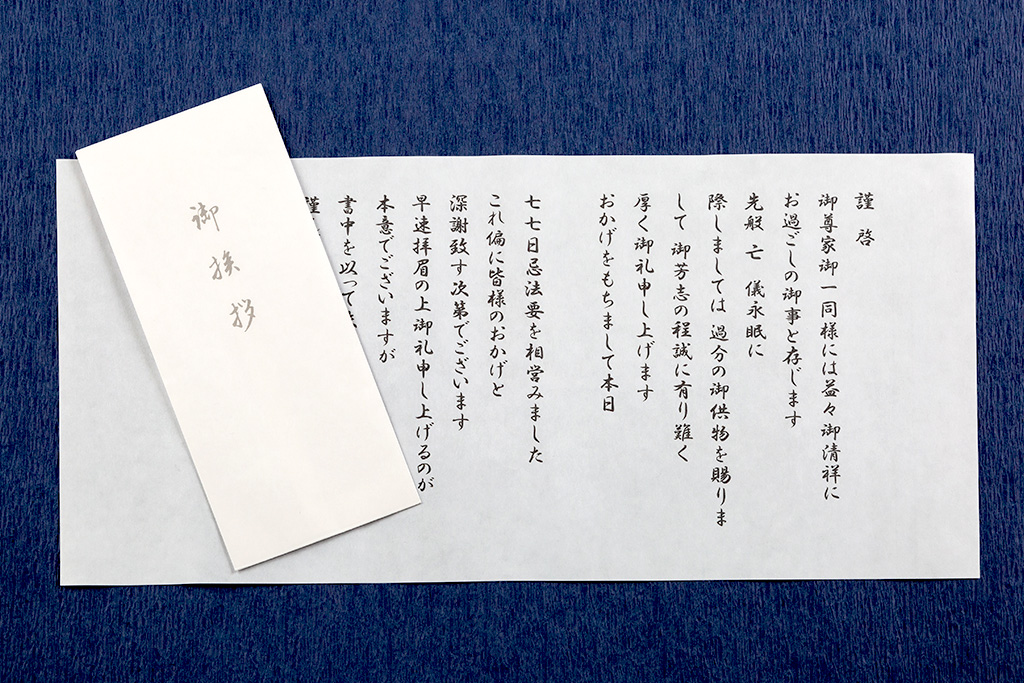 謹啓
御尊家御一同様には益々御清祥に
お過ごしの御事と存じます
先般 亡 儀永眠に
際しましては 過分の御供物を賜りま
して 御芳志の程誠に有り難く
厚く御礼申し上げます
おかげをもちまして本日
七七日忌法要を相営みました
これ偏に皆様のおかげと
深謝致す次第でございます
早速拝眉の上御礼申し上げるのが
本意でございますが
書中を以って
謹
御挨拶